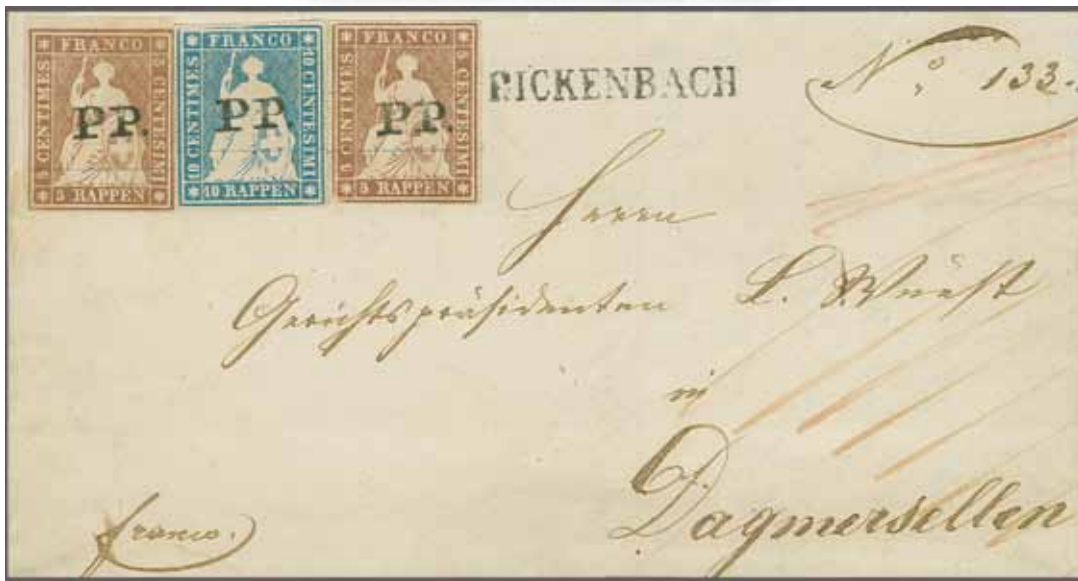 FRANCO 5 CENTIMES 5 CENTESIMI 5 RAPPEN
P.P.
FRANCO 10 CENTIMES 10 CENTESIMI 10 RAPPEN
P.P.
FRANCO 5 CENTIMES 5 CENTESIMI 5 RAPPEN
P.P.
RICKENBACH
No, 133.
Herrn
Gerichtspräsidenten L. Wüest
in
Dagmersellen
franco.